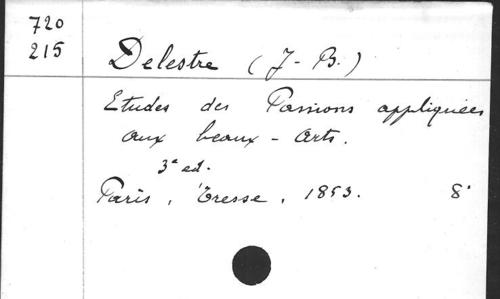 720
215
Delestre (J-B.)
Etudes des Passions appliquées
aux beaux-Arts.
3e ed.
Paris, Tresse, 1853. 8°